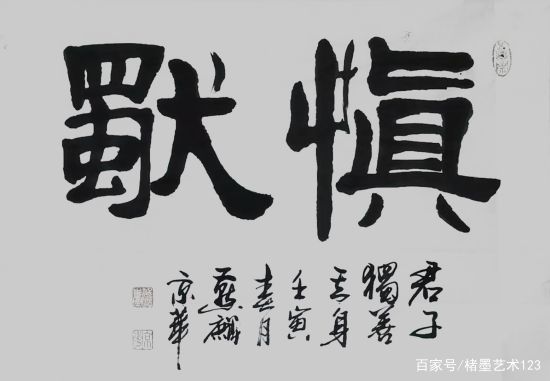 慎獨
君子
獨善
其身
壬寅
春月
麟
京華
百家号/楮墨艺术123